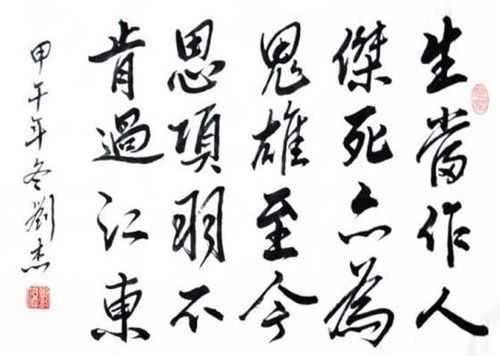 生當作人
傑死亦為
鬼雄至今
思項羽不
肯過江東
甲午年冬劉杰